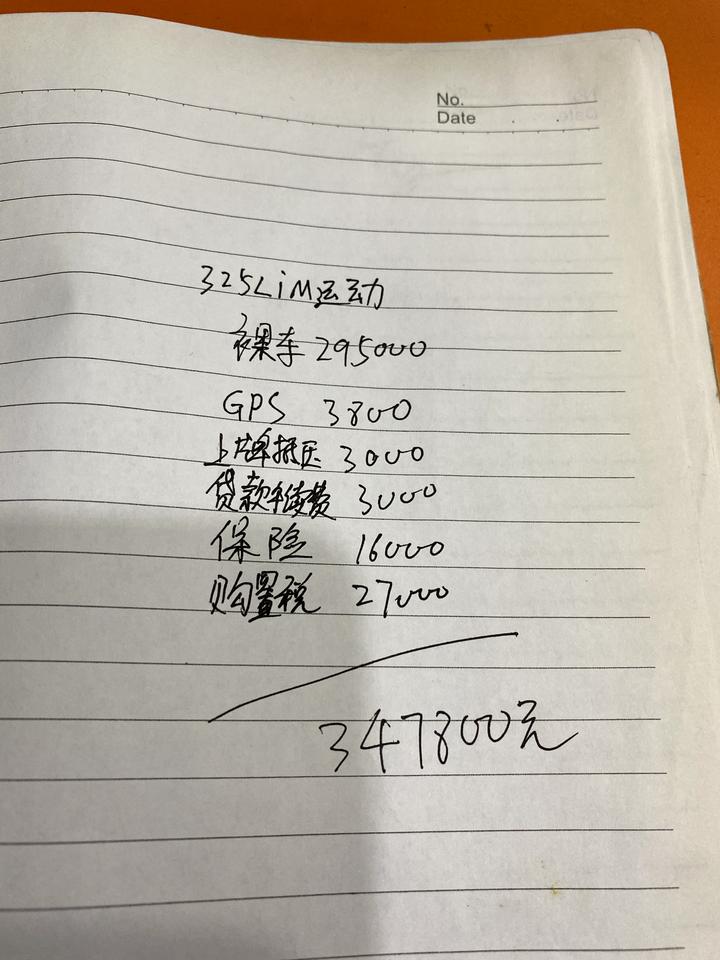 No.
Date
325LiM运动
裸车 295000
GPS 3800
上牌抵压 3000
贷款手续费 3000
保险 16000
购置税 27000
347800元